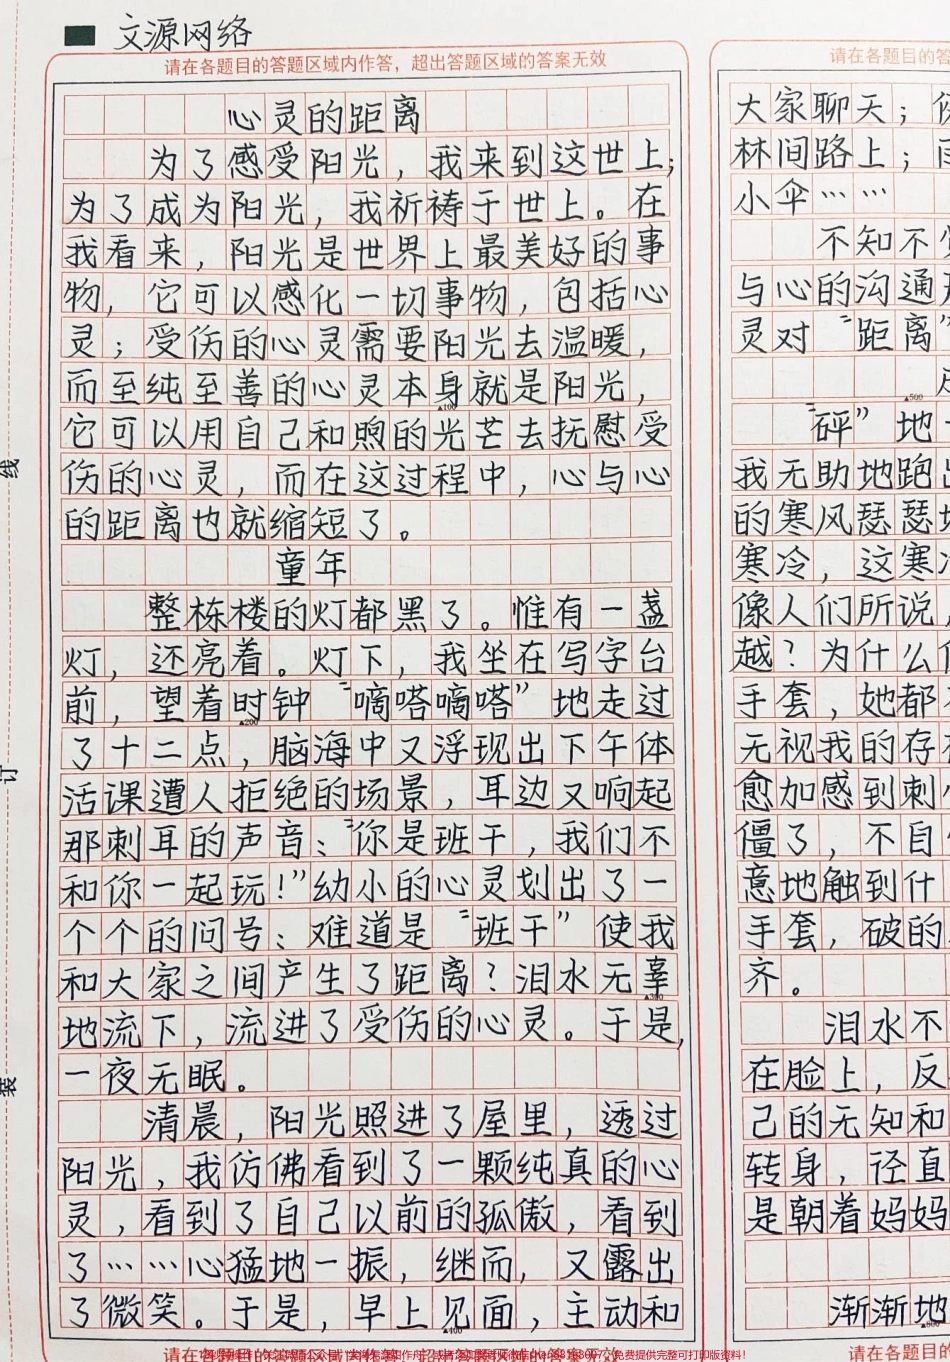 文源网络
请在各题目的答题区域内作答，超出答题区域的答案无效
心灵的距离
为了感受阳光，我来到这世上；
为了成为阳光，我祈祷于世上。在
我看来，阳光是世界上最美好的事
物，它可以感化一切事物，包括心
灵；受伤的心灵需要阳光去温暖，
而至纯至善的心灵本身就是阳光，
▲100
它可以用自己和煦的光芒去抚慰受
伤的心灵，而在这过程中，心与心
的距离也就缩短了。
童年
整栋楼的灯都黑了。惟有一盏
灯，还亮着。灯下，我坐在写字台
前，望着时钟“嘀嗒嘀嗒”地走过
▲200
了十二点，脑海中又浮现出下午体
活课遭人拒绝的场景，耳边又响起
那刺耳的声音：“你是班干，我们不
和你一起玩！”幼小的心灵划出了一
个个的问号：难道是“班干”使我
和大家之间产生了距离？泪水无辜
▲300
地流下，流进了受伤的心灵。于是，
一夜无眠。
清晨，阳光照进了屋里，透过
阳光，我仿佛看到了一颗纯真的心
灵，看到了自己以前的孤傲，看到
了……心猛地一振，继而，又露出
了微笑。于是，早上见面，主动和
▲400
请在各题目的答
大家聊天；
林间路上；
小伞……
不知不
与心的沟通
灵对“距离
▲500
“砰”地
我无助地跑
的寒风瑟瑟
寒冷，这寒
像人们所说
越？为什么
手套，她都
无视我的存
愈加感到刺
僵了，不自
意地触到什
手套，破的
齐。
泪水不
在脸上，反
己的无知和
转身，径直
是朝着妈妈
渐渐地
请在各题目
线
订
装